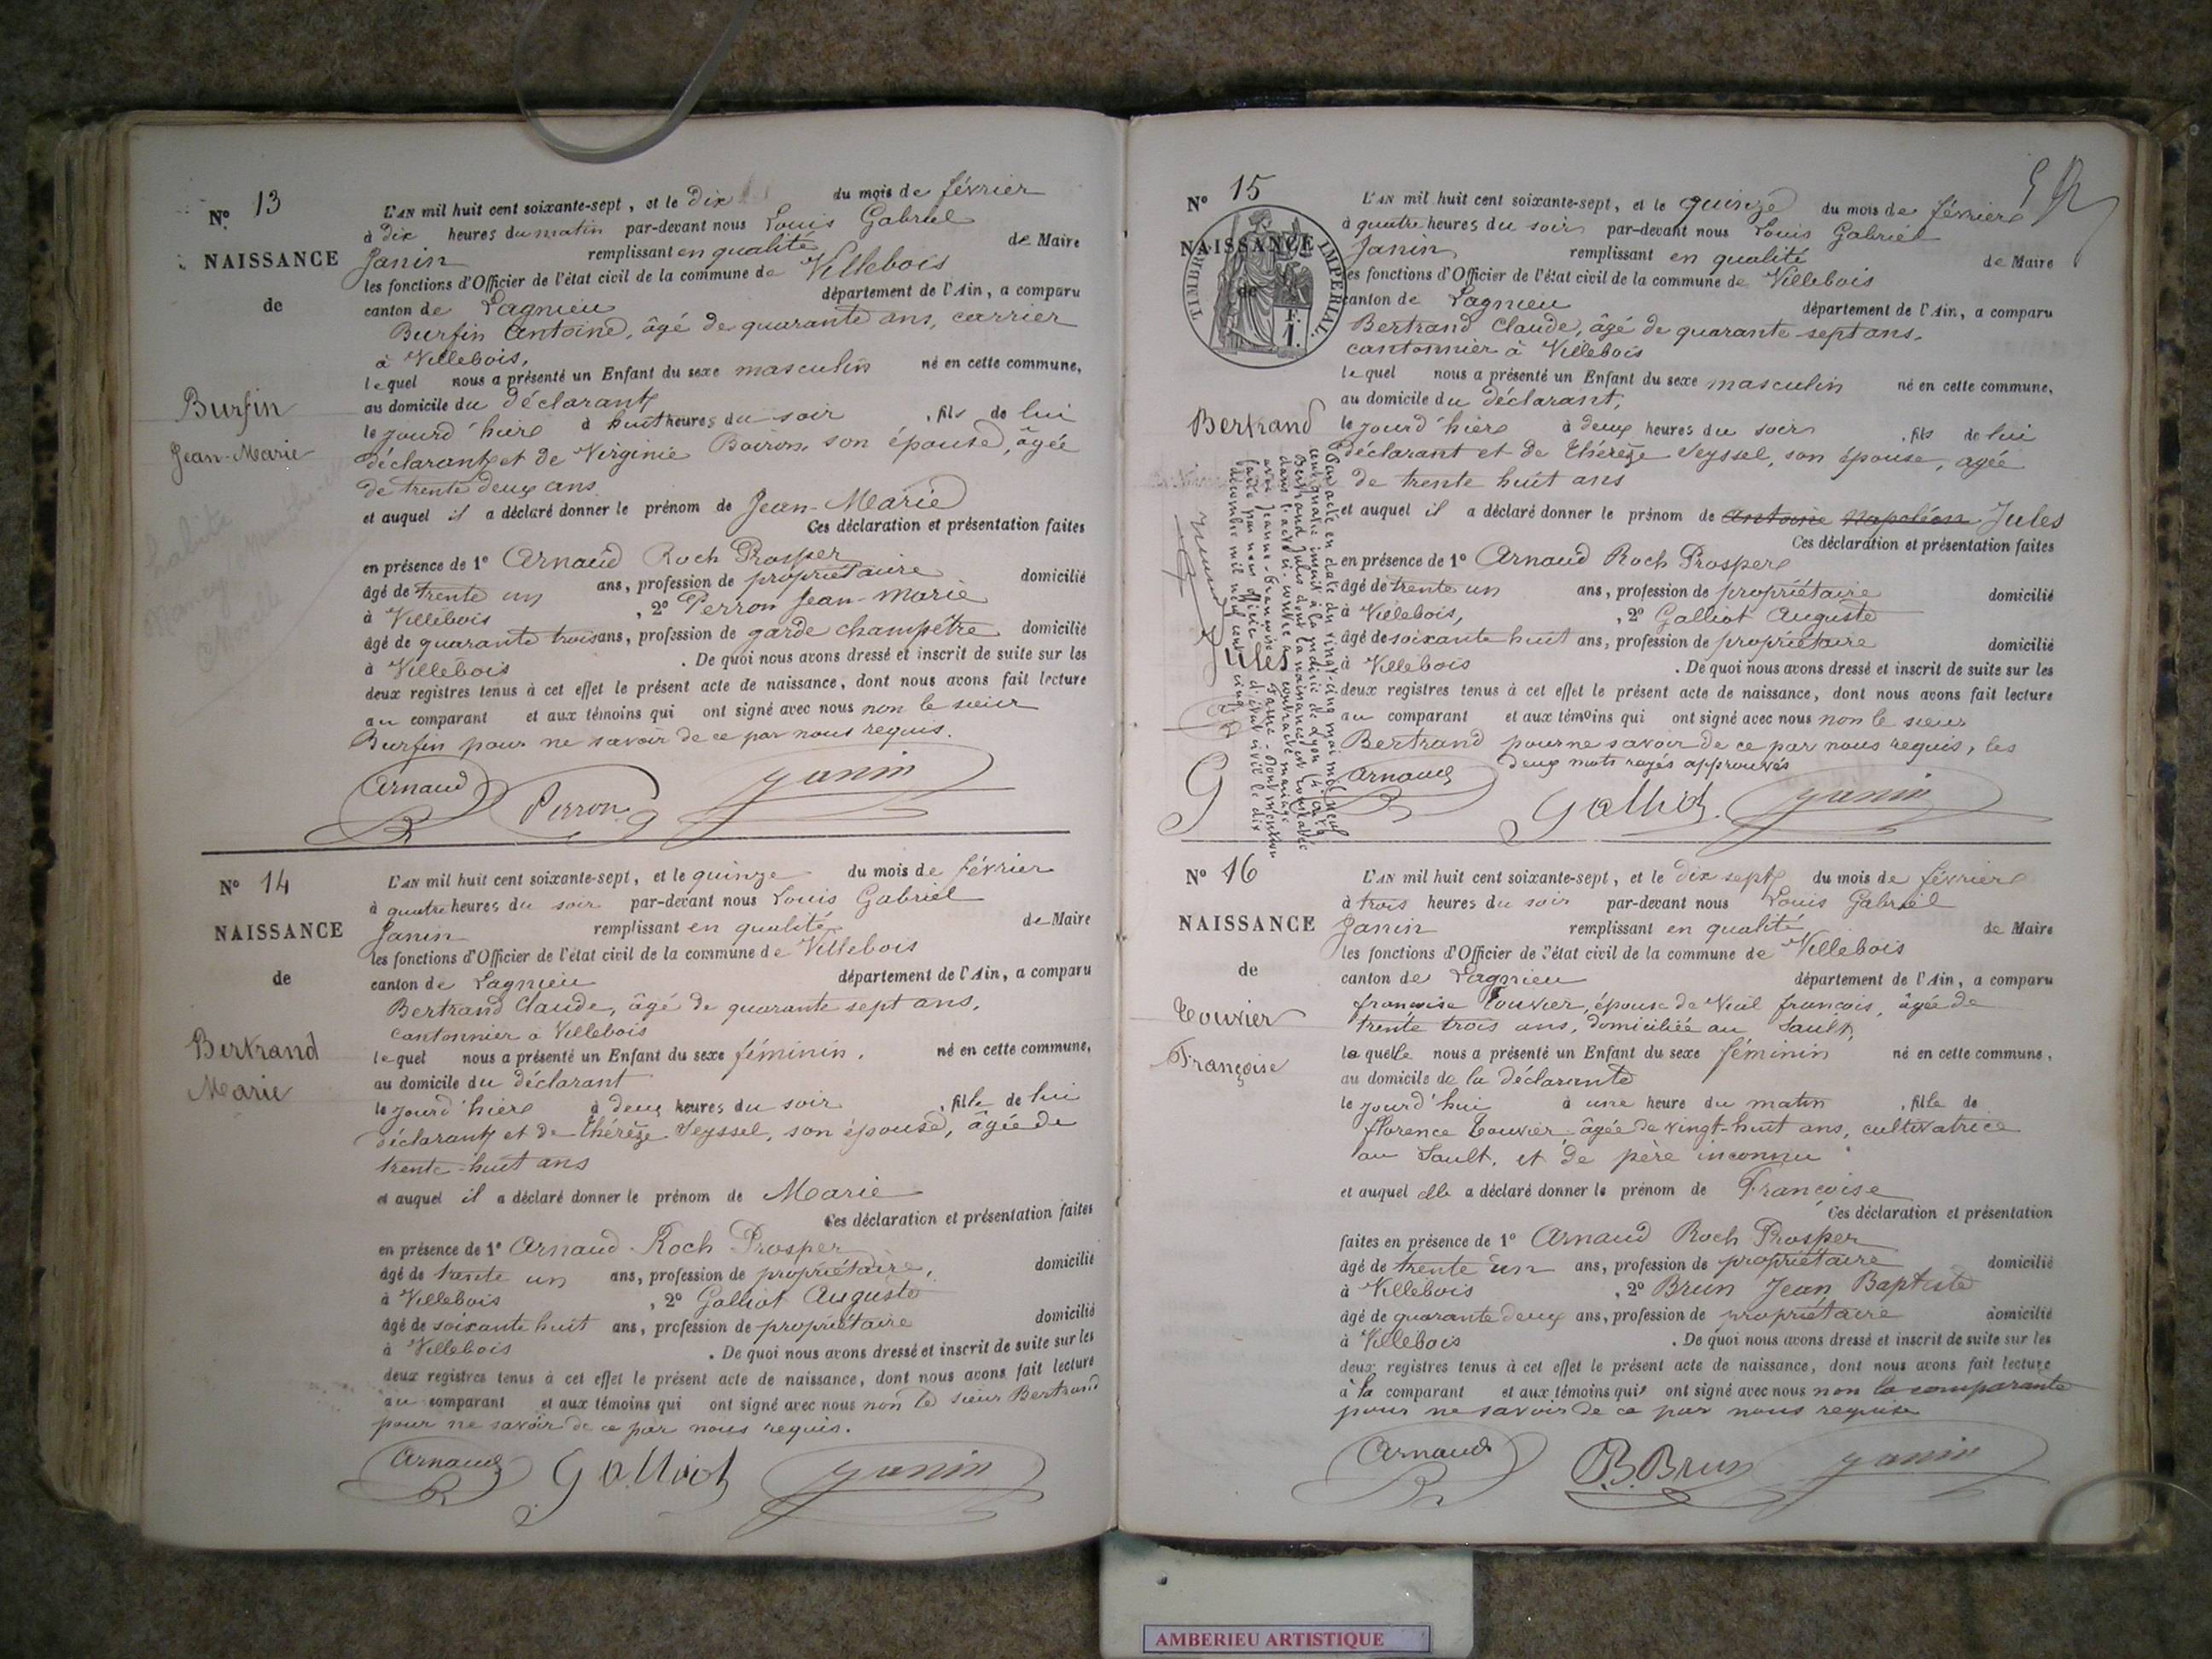 N° 13
NAISSANCE
de
Burfin
Jean-Marie
L'AN mil huit cent soixante-sept, et le dix du mois de février
à dix heures du matin par-devant nous Louis Gabriel
Janin remplissant en qualité de Maire
les fonctions d'Officier de l'état civil de la commune de Villebois
canton de Lagnieu département de l'Ain, a comparu
Burfin Antoine, âgé de quarante ans, carrier
à Villebois,
lequel nous a présenté un Enfant du sexe masculin né en cette commune,
au domicile du déclarant
le jourd'hier à huit heures du soir, fils de lui
déclarant et de Virginie Boiron, son épouse, âgée
de trente deux ans
et auquel il a déclaré donner le prénom de Jean-Marie
Ces déclaration et présentation faites
en présence de 1° Arnaud Roch Prosper
âgé de trente un ans, profession de propriétaire domicilié
à Villebois, 2° Perron Jean-Marie
âgé de quarante trois ans, profession de garde champêtre domicilié
à Villebois. De quoi nous avons dressé et inscrit de suite sur les
deux registres tenus à cet effet le présent acte de naissance, dont nous avons fait lecture
au comparant et aux témoins qui ont signé avec nous non le sieur
Burfin pour ne savoir de ce par nous requis.
Arnaud Perron Janin
N° 14
NAISSANCE
de
Bertrand
Marie
L'AN mil huit cent soixante-sept, et le quinze du mois de février
à quatre heures du soir par-devant nous Louis Gabriel
Janin remplissant en qualité de Maire
les fonctions d'Officier de l'état civil de la commune de Villebois
canton de Lagnieu département de l'Ain, a comparu
Bertrand Claude, âgé de quarante sept ans,
cantonnier à Villebois
lequel nous a présenté un Enfant du sexe féminin, né en cette commune,
au domicile du déclarant
le jourd'hier à deux heures du soir, fille de lui
déclarant et de Thérèze Seyssel, son épouse, âgée de
trente-huit ans
et auquel il a déclaré donner le prénom de Marie
Ces déclaration et présentation faites
en présence de 1° Arnaud Roch Prosper
âgé de trente un ans, profession de propriétaire, domicilié
à Villebois, 2° Galliot Auguste
âgé de soixante huit ans, profession de propriétaire domicilié
à Villebois. De quoi nous avons dressé et inscrit de suite sur les
deux registres tenus à cet effet le présent acte de naissance, dont nous avons fait lecture
au comparant et aux témoins qui ont signé avec nous non le sieur Bertrand
pour ne savoir de ce par nous requis.
Arnaud Galliot Janin
N° 15
NAISSANCE
de
TIMBRE IMPERIAL.
F.
1.
Bertrand
Jules
Par acte en date du vingt-cinq mai mil neuf
cent quatre inscrit à la mairie de Lyon
Bertrand Jules dont la naissance est constatée
dans l'acte ci-contre a contracté mariage
avec Jeanne-Françoise dont mention
faite par nous officier d'état civil le dix
décembre mil neuf cent cinq
L'AN mil huit cent soixante-sept, et le quinze du mois de février
à quatre heures du soir par-devant nous Louis Gabriel
Janin remplissant en qualité de Maire
les fonctions d'Officier de l'état civil de la commune de Villebois
canton de Lagnieu département de l'Ain, a comparu
Bertrand Claude, âgé de quarante-sept ans,
cantonnier à Villebois
lequel nous a présenté un Enfant du sexe masculin né en cette commune,
au domicile du déclarant,
le jourd'hier à deux heures du soir, fils de lui
déclarant et de Thérèze Seyssel, son épouse, agée
de trente huit ans
et auquel il a déclaré donner le prénom de Antoine Napoléon Jules
Ces déclaration et présentation faites
en présence de 1° Arnaud Roch Prosper
âgé de trente un ans, profession de propriétaire domicilié
à Villebois, 2° Galliot Auguste
âgé de soixante huit ans, profession de propriétaire domicilié
à Villebois. De quoi nous avons dressé et inscrit de suite sur les
deux registres tenus à cet effet le présent acte de naissance, dont nous avons fait lecture
au comparant et aux témoins qui ont signé avec nous non le sieur
Bertrand pour ne savoir de ce par nous requis, les
deux mots rayés approuvés
Arnaud Galliot Janin
N° 16
NAISSANCE
de
Touvier
Françoise
L'AN mil huit cent soixante-sept, et le dix sept du mois de février
à trois heures du soir par-devant nous Louis Gabriel
Janin remplissant en qualité de Maire
les fonctions d'Officier de l'état civil de la commune de Villebois
canton de Lagnieu département de l'Ain, a comparu
françoise Touvier, épouse de Vial françois, âgée de
trente trois ans, domiciliée au Sault,
laquelle nous a présenté un Enfant du sexe féminin né en cette commune,
au domicile de la déclarante
le jourd'hui à une heure du matin, fille de
florence Touvier, âgée de vingt-huit ans, cultivatrice
au Sault, et de père inconnu
et auquel elle a déclaré donner le prénom de Françoise
Ces déclaration et présentation
faites en présence de 1° Arnaud Roch Prosper
âgé de trente un ans, profession de propriétaire domicilié
à Villebois, 2° Brun Jean Baptiste
âgé de quarante deux ans, profession de propriétaire domicilié
à Villebois. De quoi nous avons dressé et inscrit de suite sur les
deux registres tenus à cet effet le présent acte de naissance, dont nous avons fait lecture
à la comparant et aux témoins qui ont signé avec nous non la comparante
pour ne savoir de ce par nous requise
Arnaud J.B. Brun Janin
AMBERIEU ARTISTIQUE